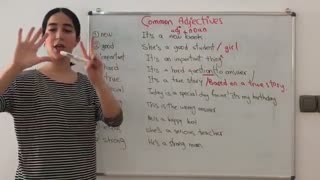 Common Adjectives
adj + noun
1) new It's a new book
2) good She's a good student / girl
important It's an important thing
hard It's a hard question to answer /
true It's a true story / based on a true story
special Today is a special day for me / it's my birthday
This is the wrong answer
He is a happy kid
She's a serious teacher
strong He's a strong man